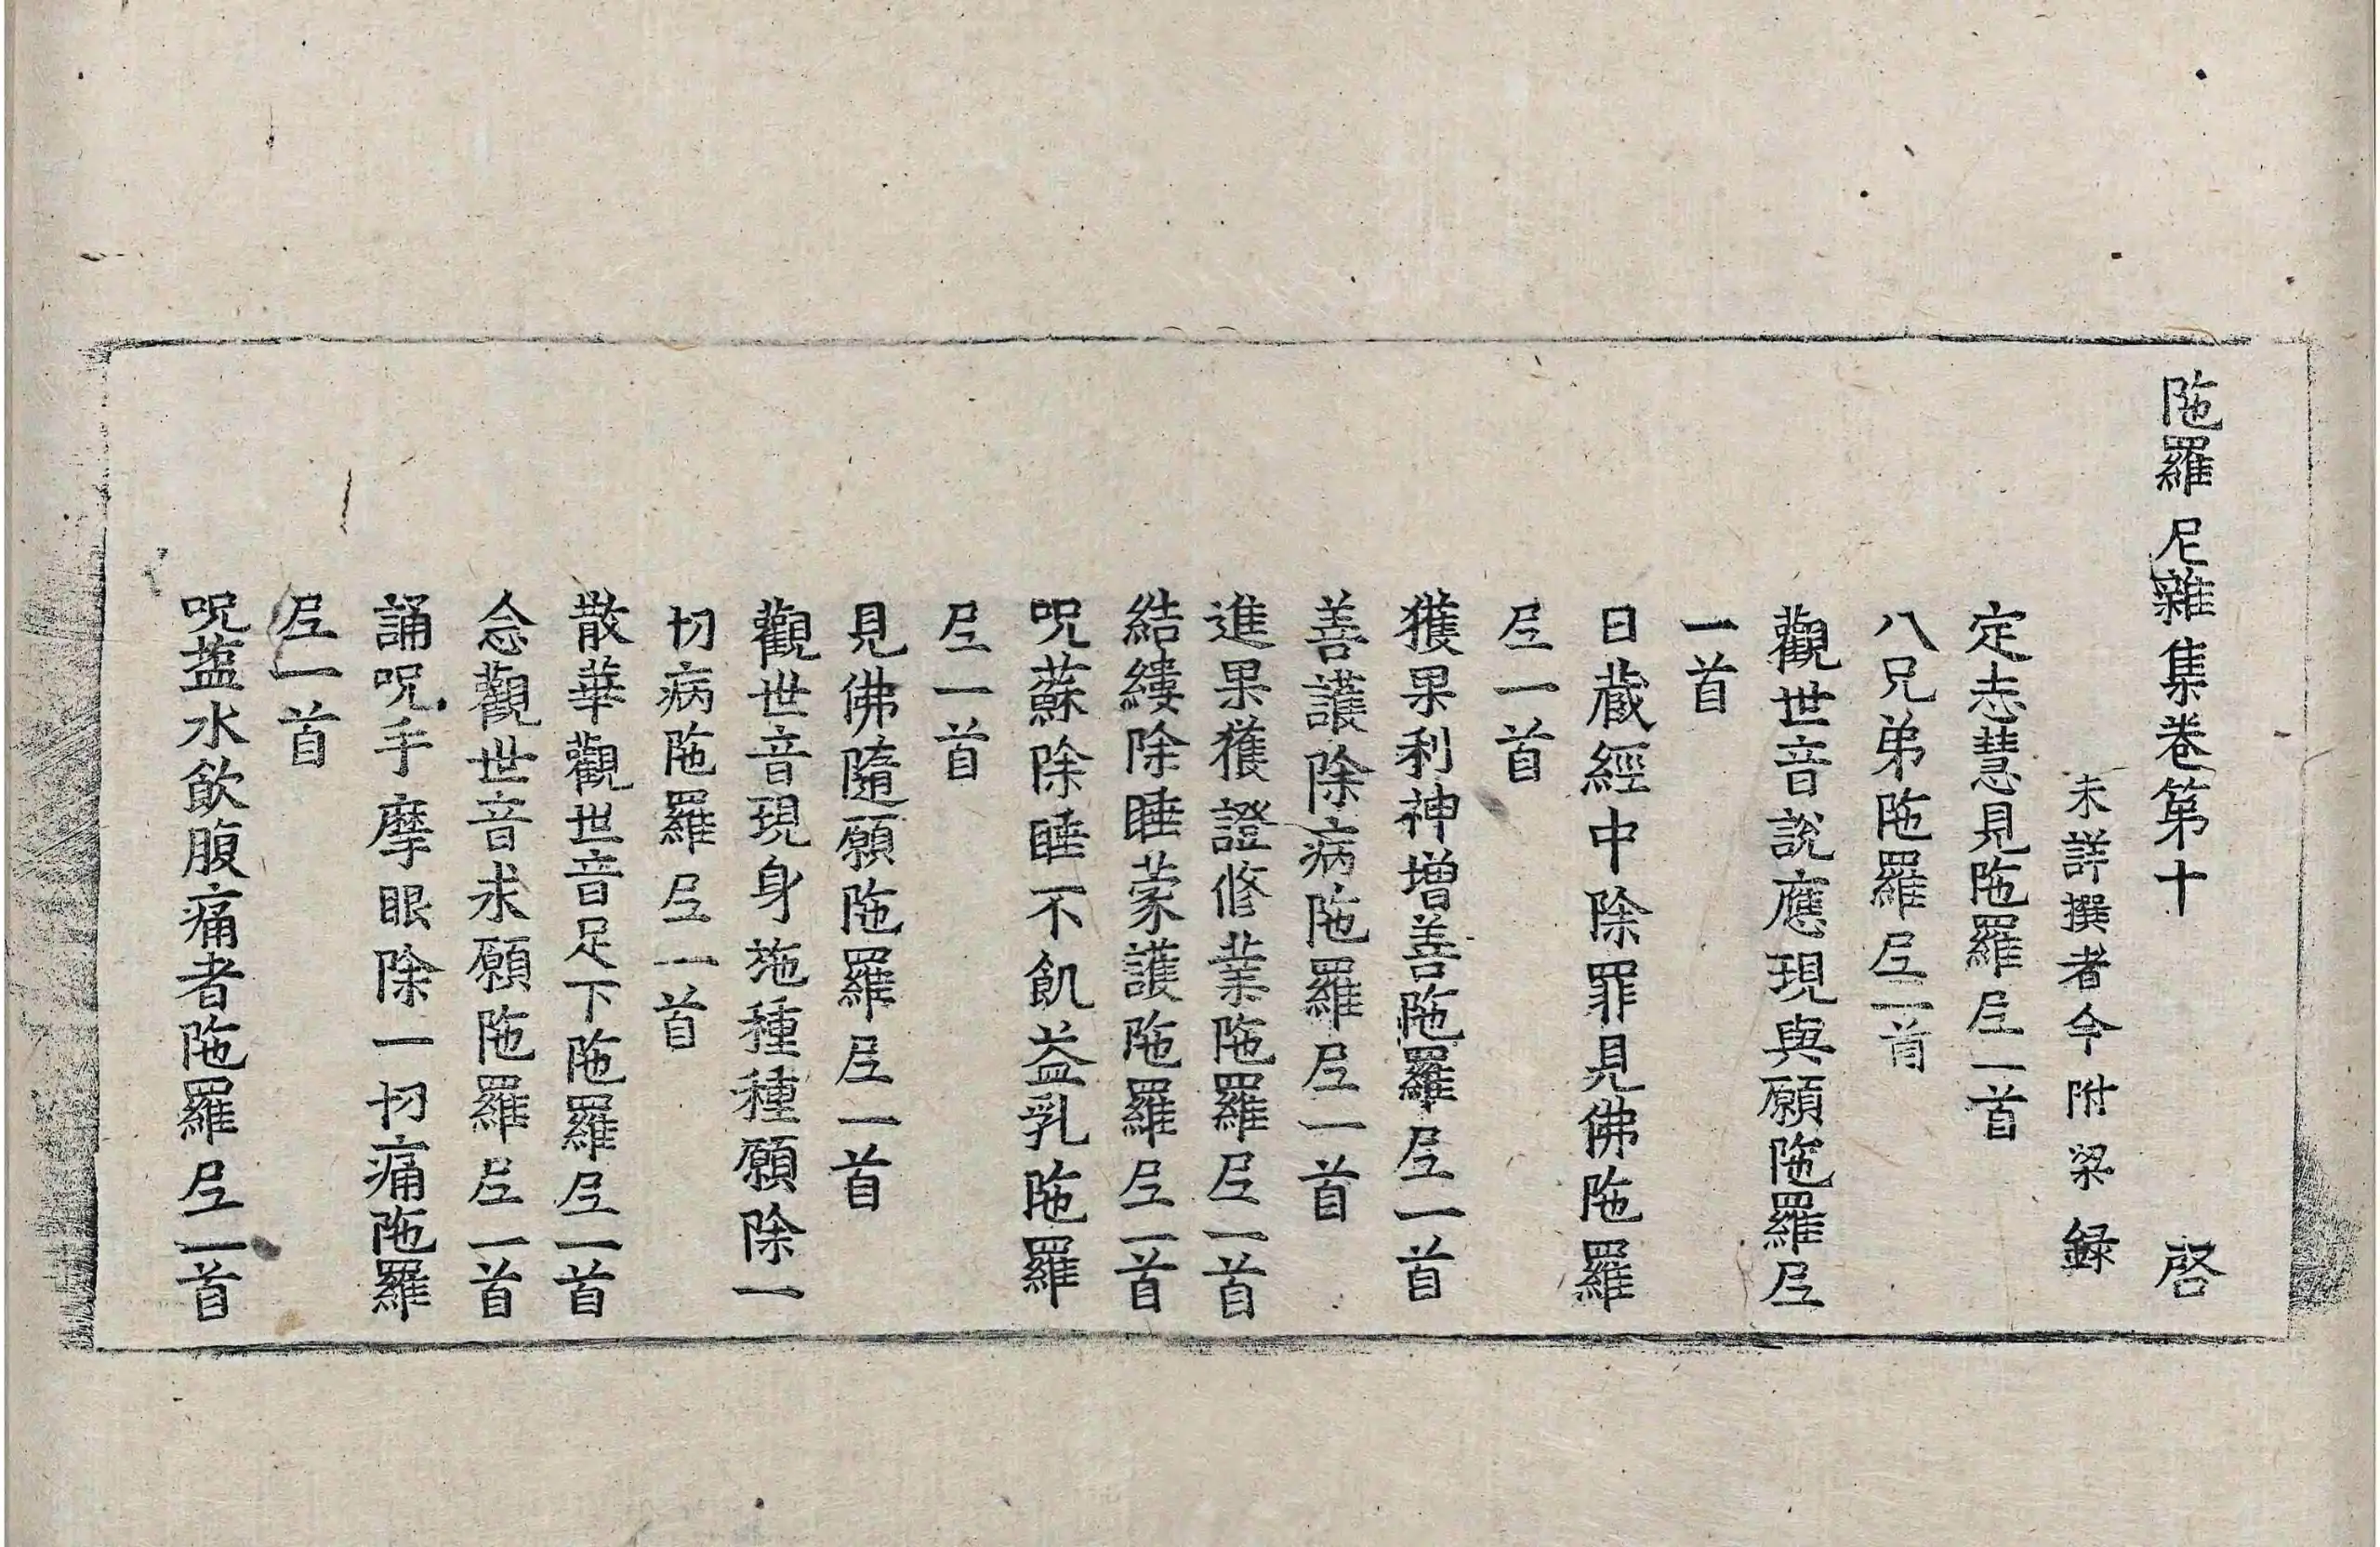 陁羅尼雜集卷第十 啓
未詳撰者今附梁録
定志慧見陁羅𡰱一首
八兄弟陁羅𡰱一首
觀世音說應現與願陁羅𡰱
一首
日蔵經中除罪見佛陁羅
𡰱一首
獲果利神增善陁羅𡰱一首
善護除病陁羅𡰱一首
進果獲證修業陁羅𡰱一首
結縷除睡蒙護陁羅𡰱一首
呪蘇除睡不飢益乳陁羅
𡰱一首
見佛隨願陁羅𡰱一首
觀世音現身施種種願除一
切病陁羅𡰱一首
散華觀世音足下陁羅𡰱一首
念觀世音求願陁羅𡰱一首
誦呪手摩眼除一切痛陁羅
𡰱一首
呪盐水飲腹痛者陁羅𡰱一首